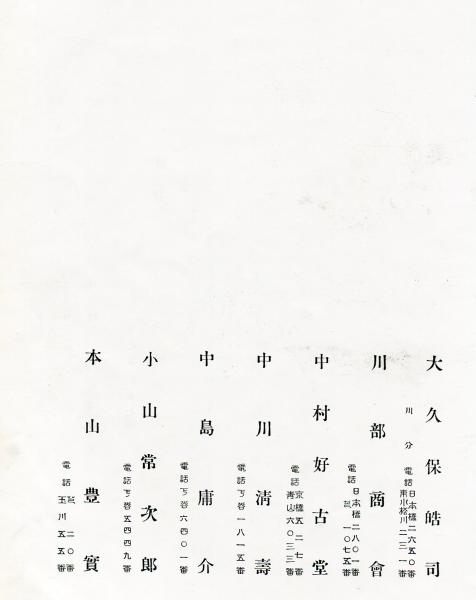 大久保皓司
川分
電話日本橋二六五〇番
東小松川二三一番
川部商會
電話日本橋二八〇一番
一〇七五番
中村好古堂
電話京橋五二七番
青山六〇三三番
中川淸壽
電話下谷一八一五番
中島庸介
電話下谷六四〇一番
小山常次郎
電話下谷五四四九番
本山豊實
電話 二〇番
玉川五五番